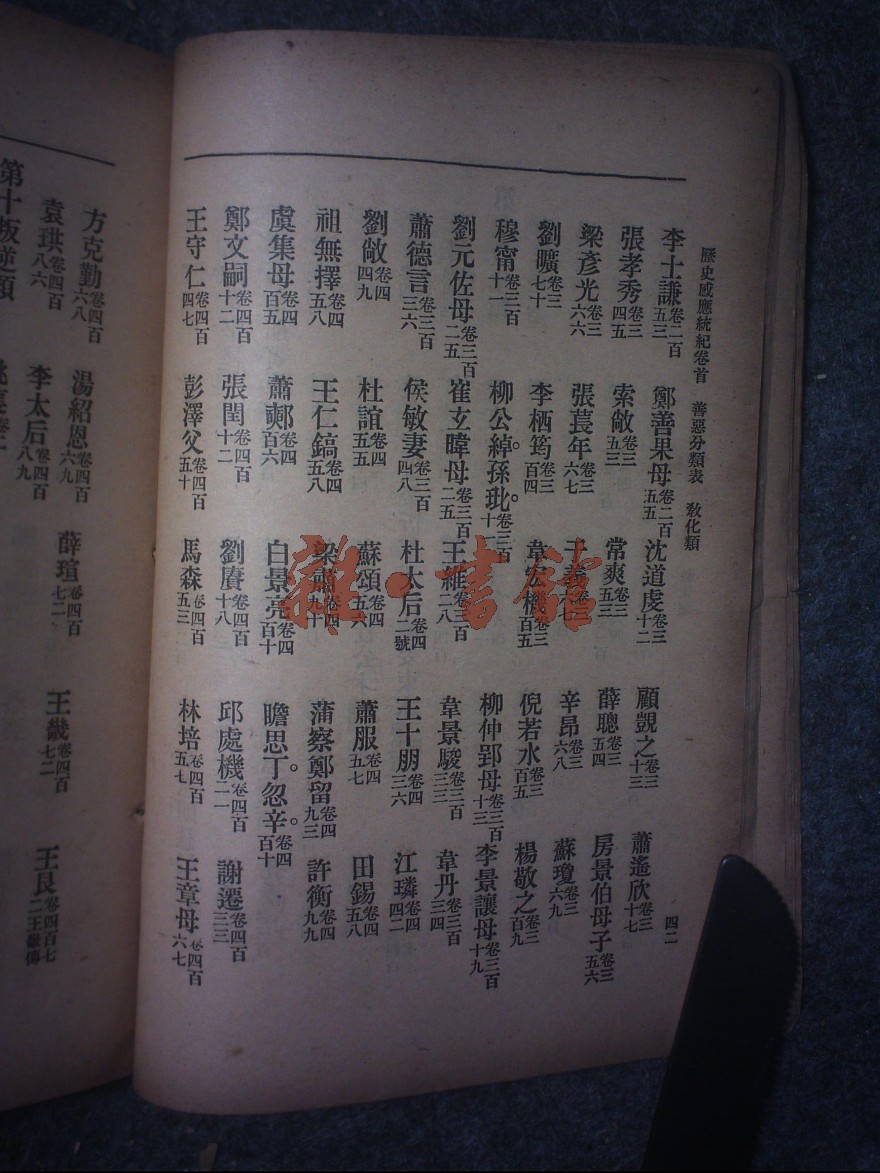 歷史感應統紀卷首　善惡分類表　教化類　四二
李士謙卷二百五三　鄭善果母卷二百五五　沈道虔卷三十二　顧覬之卷三十三　蕭遙欣卷三十七
張孝秀卷三四五　索敞卷三五三　常爽卷三五三　薛聰卷三五四　房景伯母子卷三五六
梁彥光卷三六六　張萇年卷三六七　卷三六七　辛昂卷三六八　蘇瓊卷三六九
劉曠卷三七十　李栖筠卷三百四　韋宏機卷三百五　倪若水卷三百五　楊敬之卷三百九
穆甯卷三百十一　柳公綽。孫玭。卷三百十一　柳仲郢母卷三百十三　李景讓母卷三百十九
劉元佐母卷三百二五　崔玄暐母卷三百二五　王維卷三百二八　韋景駿卷三百三三　韋丹卷三百三四
蕭德言卷三百三六　侯敏妻卷三百四八　杜太后卷四二號　王十朋卷四三六　江璘卷四四二
劉敞卷四四九　杜誼卷四五五　蘇頌卷四五六　蕭服卷四五七　田錫卷四五八
祖無擇卷四五八　王仁鎬卷四五八　梁肅卷四九十　蒲察鄭留卷四九三　許衡卷四九九
虞集母卷四百五　蕭㪺卷四百六　白景亮卷四百十　瞻思丁。忽辛。卷四百十
鄭文嗣卷四百十二　張閏卷四百十二　劉賡卷四百十八　邱處機卷四百二一　謝遷卷四百三三
王守仁卷四百四七　彭澤父卷四百五十　馬森卷四百五三　林培卷四百五七　王章母卷四百六七
方克勤卷四百六八　湯紹恩卷四百六九　薛瑄卷四百七二　王畿卷四百七二　王艮卷四百七二王畿傳
袁珙卷四百八六　李太后卷四百八九
第十叛逆類
雜·書館